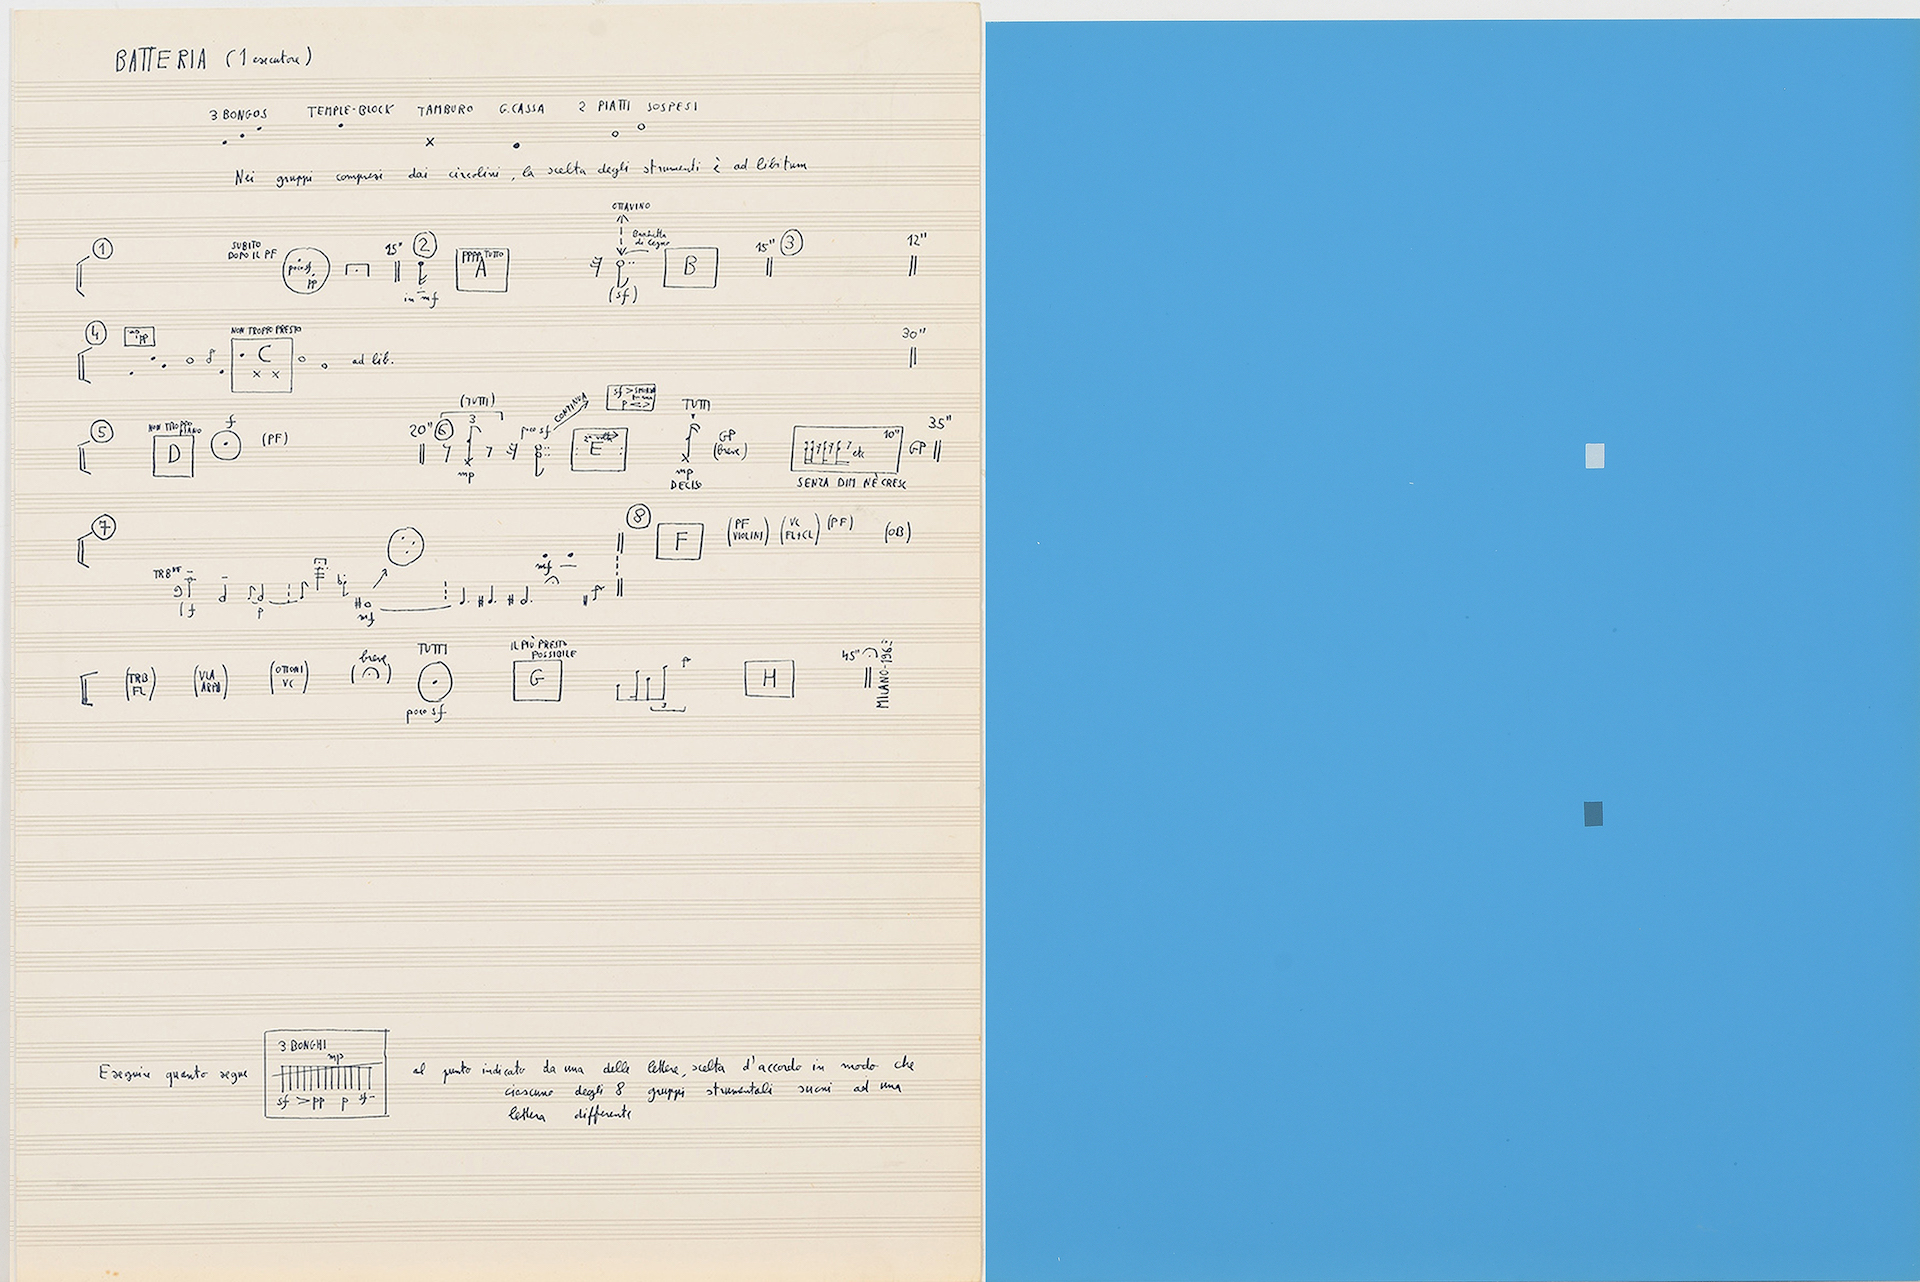 BATTERIA (1 esecutore)
3 BONGOS TEMPLE-BLOCK TAMBURO G.CASSA 2 PIATTI SOSPESI
Nei gruppi compresi dai circolini, la scelta degli strumenti è ad libitum
OTTAVINO
1 SUBITO DOPO IL PF poco sf pp 15" 2 in mf PPPP TUTTO A Bacchetta di legno (sf) B 15" 3 12"
4 pp NON TROPPO PRESTO C ad lib. 30"
5 NON TROPPO PIANO D f (PF) 20" 6 (TUTTI) 3 mp poco sf CONTINUA sf > p <> E TUTTI mp DECISO GP (breve) 10" etc SENZA DIM NÈ CRESC GP 35"
7 8 F (PF VIOLINI) (VC FL+CL) (PF) (OB)
TRB f p mf mf
(TRB FL) (VLA ARPA) (OTTONI VC) breve TUTTI poco sf IL PIÙ PRESTO POSSIBILE G 3 H 45" MILANO-196
3 BONGHI
mp
Eseguire quanto segue al punto indicato da una delle lettere, scelta d'accordo in modo che
sf > pp p sf ciascuno degli 8 gruppi strumentali suoni ad una
lettera differente